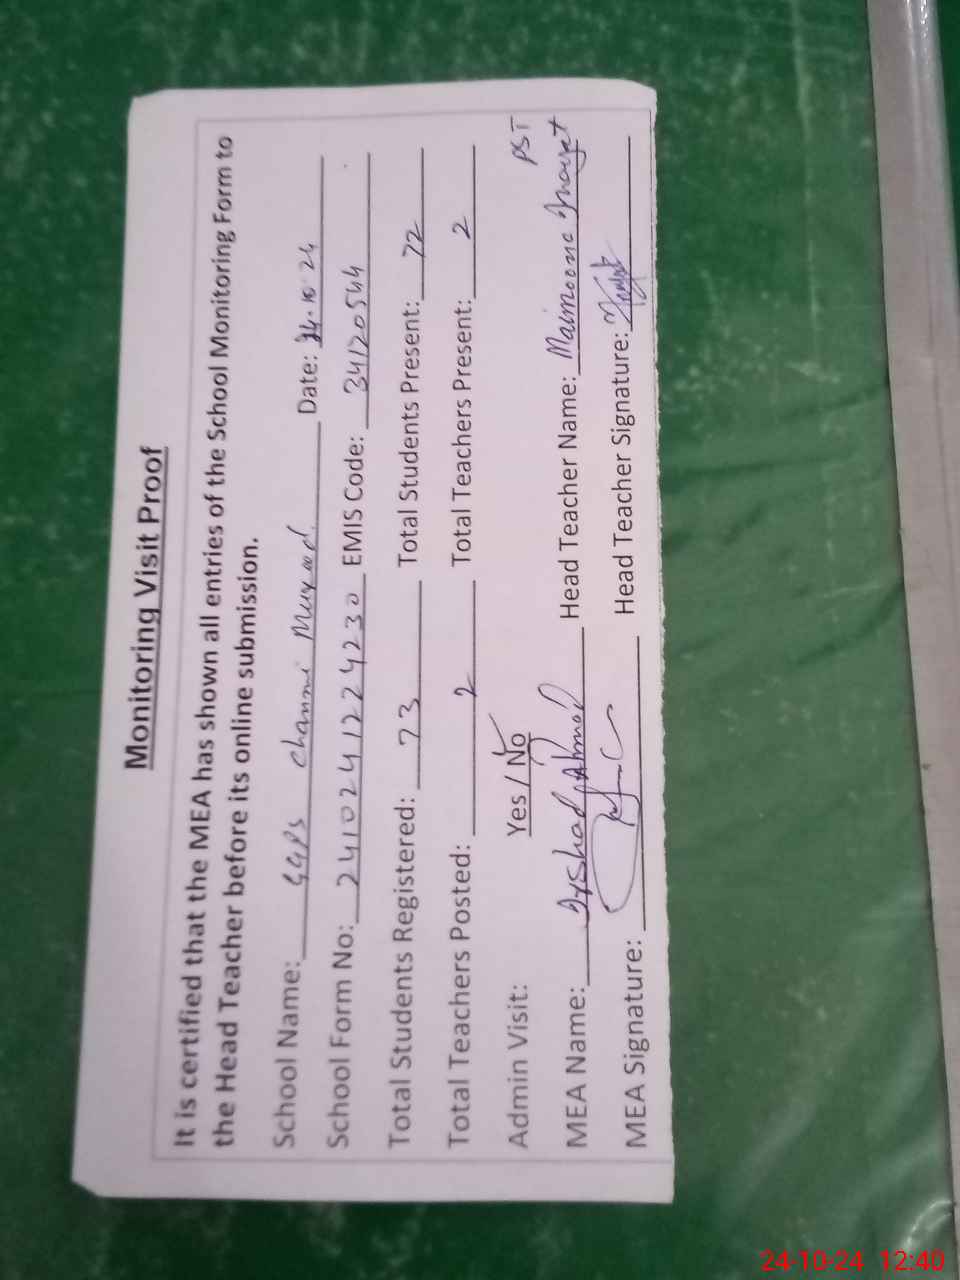 Monitoring Visit Proof
It is certified that the MEA has shown all entries of the School Monitoring Form to
the Head Teacher before its online submission.
School Name: GGPS Channi Murad Date: 24.10.24
School Form No: 2410241224230 EMIS Code: 34120544
Total Students Registered: 73 Total Students Present: 72
Total Teachers Posted: 2 Total Teachers Present: 2
Admin Visit: Yes / No PST
MEA Name: Irshad Ahmad Head Teacher Name: Maimoona Inayat
MEA Signature: Head Teacher Signature:
24-10-24 12:40